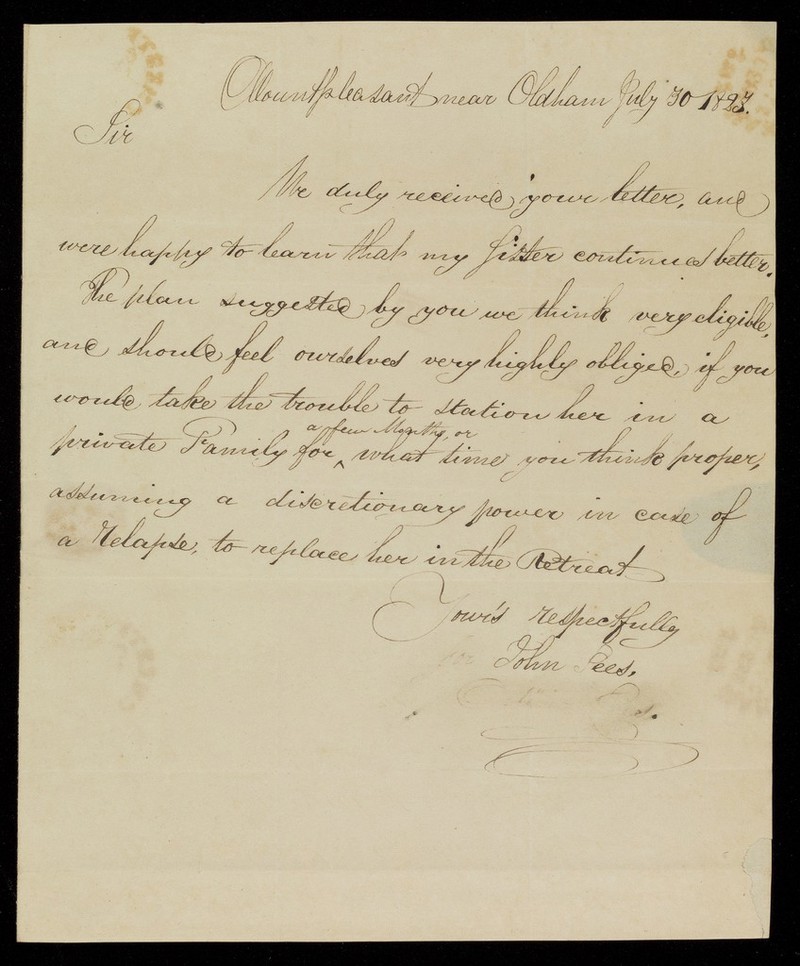 Mountpleasant near Oldham July 30 1827.
Sir
We duly received your letter, and
were happy to learn that my Sister continues better.
The plan suggested by you we think very eligible,
and should feel ourselves very highly obliged, if you
would take the trouble to station her in a
a few Months, or
private Family for ^ what time you think proper,
assuming a discretionary power in case of
a Relapse, to replace her in the Retreat
Your's respectfully
John Lees.